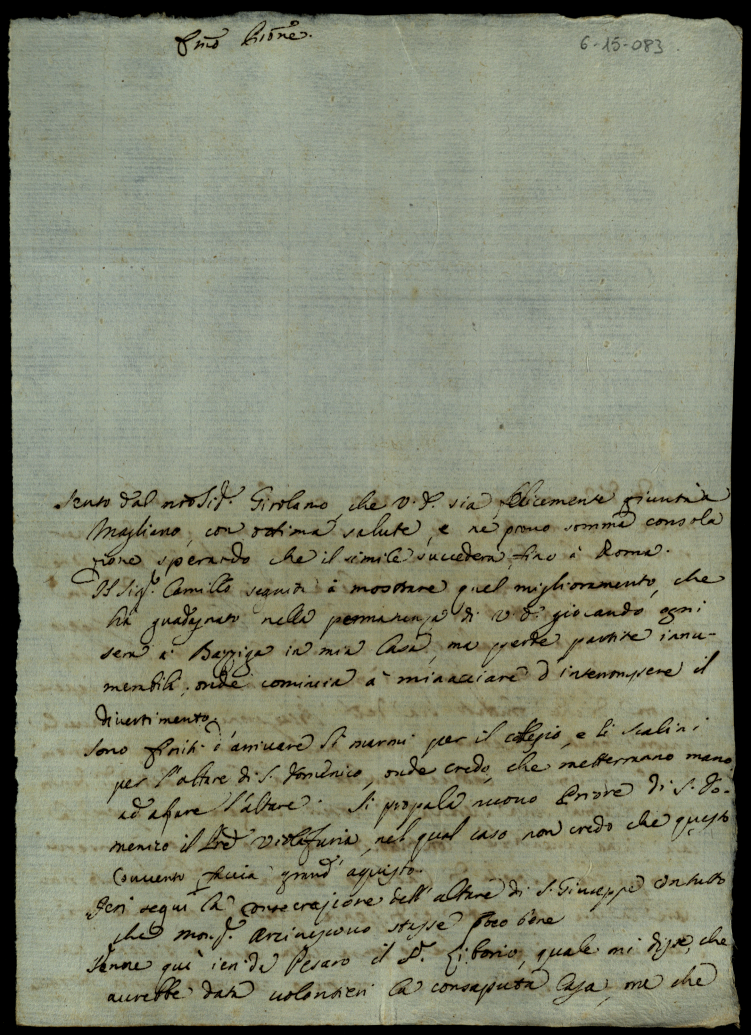 6-15-083
Sento dal nro Sig.r Girolamo, che V.S. sia felicemente giunta a
Magliano, con ottima salute, e ne provo somma consola
zione sperando che il simile succederà fino à Roma.
Il Sig.r Camillo seguita à mostrare quel miglioramento, che
hà guadagnato nella permanenza di V.S. giocando ogni
sera à Bazziga in mia Casa, ma perde partite innu-
merabili, onde comincia à minacciare d'interrompere il
divertimento.
Sono finiti d'arrivare li marmi per il colegio, e li scalini
per l'altare di S. Domenico, onde credo, che metteranno mano
ad alzare l'altare. Si propala nuovo Priore di S. Do-
menico il Pred, nel qual caso non credo che questo
Convento faccia grand'aquisto.
Ieri seguì la consecrazione dell'altare di S. Giuseppe con tutto
che Mons.r Arcivescovo stasse poco bene
Venne quì ieri da Pesaro il Sr. Liborio, quale mi disse, che
avrebbe data volontieri la consaputa Casa, ma che